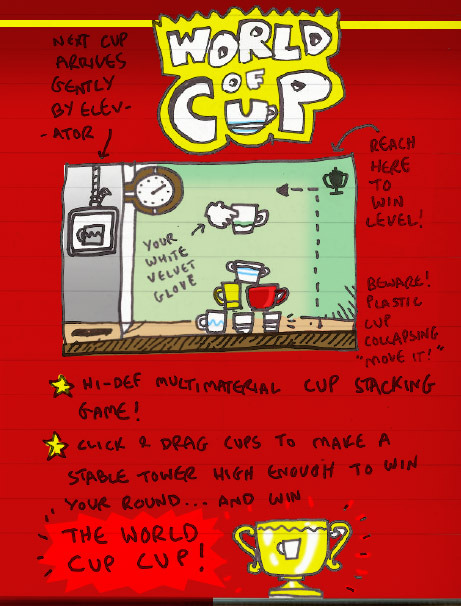 WORLD
OF
CUP
NEXT CUP
ARRIVES
GENTLY
BY ELEV-
-ATOR
REACH
HERE
TO
WIN
LEVEL!
YOUR
WHITE
VELVET
GLOVE
BEWARE!
PLASTIC
CUP
COLLAPSING
"MOVE IT!"
HI-DEF MULTIMATERIAL CUP STACKING
GAME!
CLICK & DRAG CUPS TO MAKE A
STABLE TOWER HIGH ENOUGH TO WIN
YOUR ROUND... AND WIN
THE WORLD
CUP CUP!